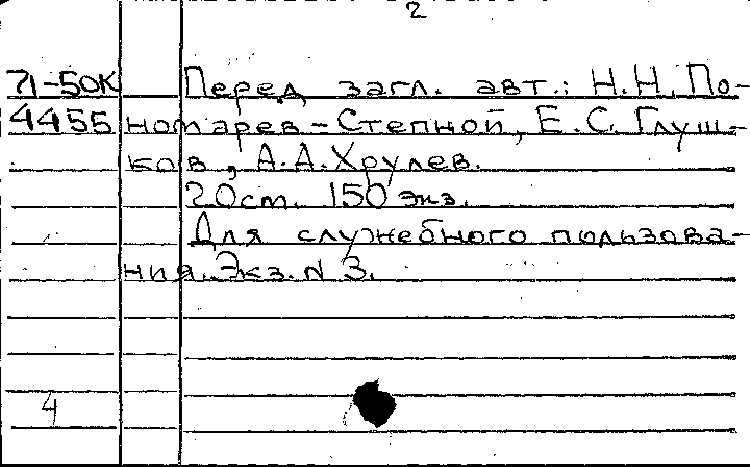 2
71-50К Перед загл. авт.: Н.Н. По-
4455 номарев-Степной, Е.С. Глуш-
ков, А.А. Хрулев.
20 ст. 150 экз.
Для служебного пользова-
ния. Экз. N 3.
4